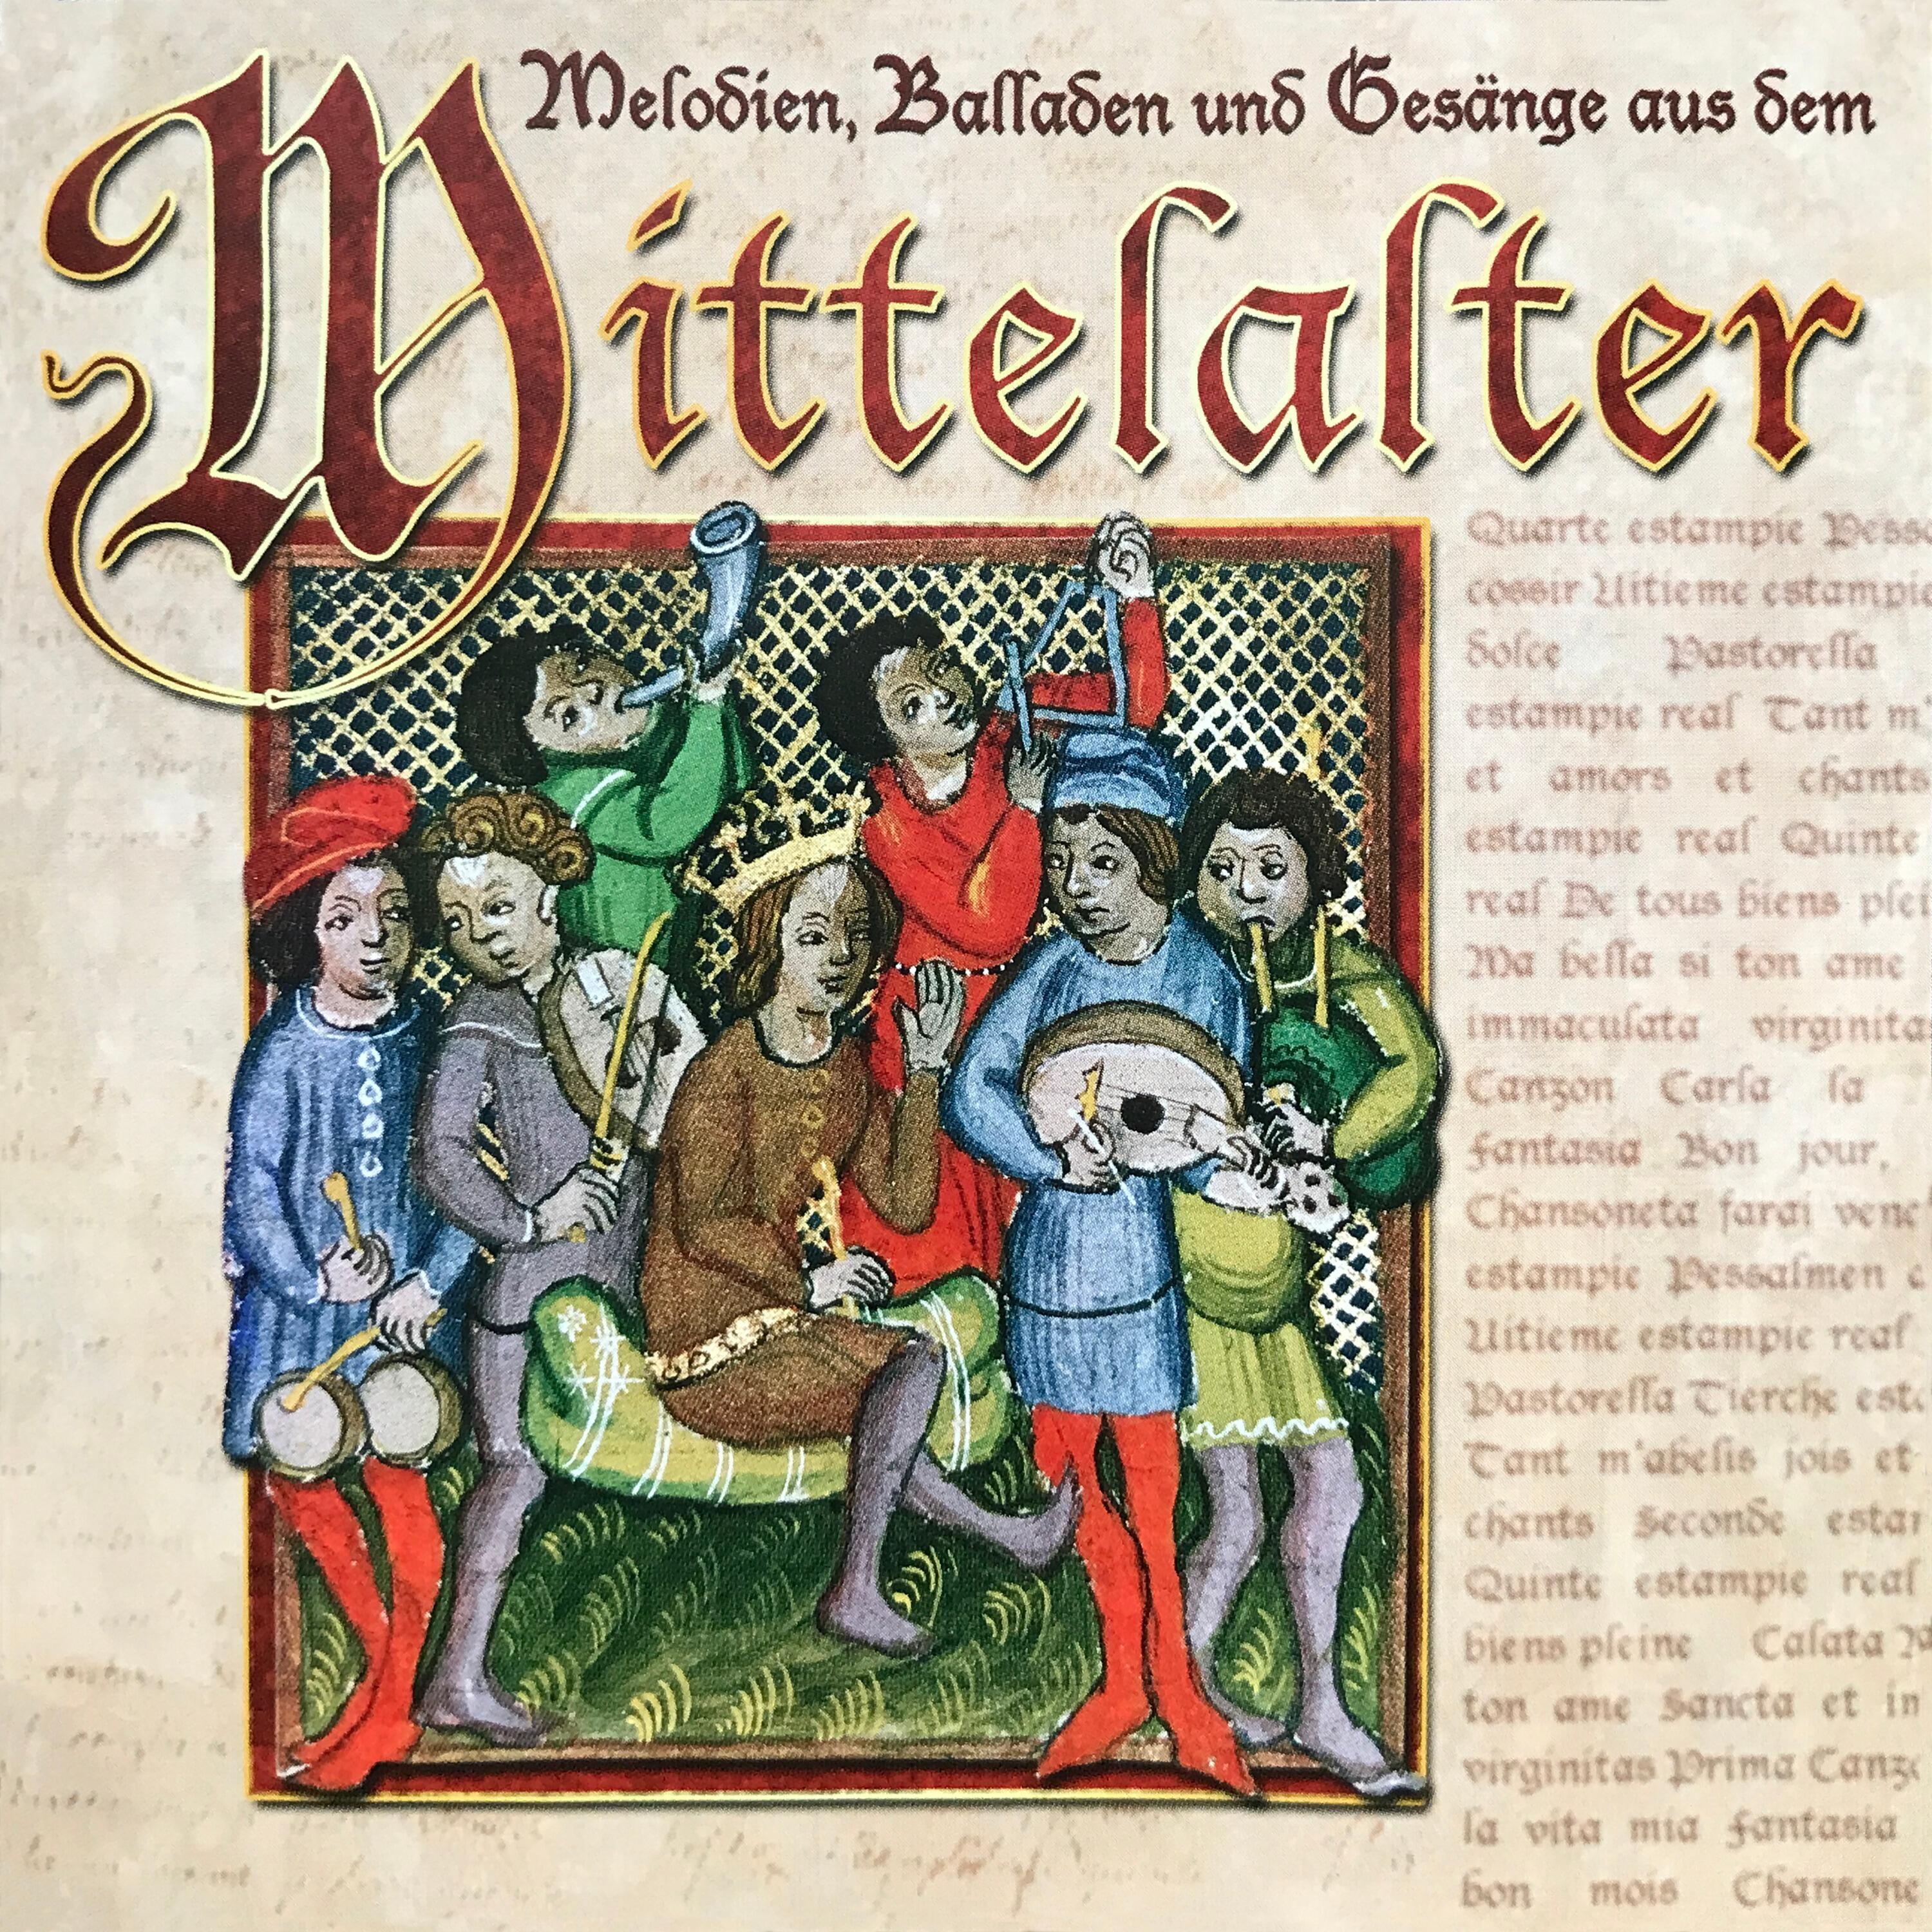 Melodien, Balladen und Gesänge aus dem
Mittelalter
Quarte estampie Pess
cossir Uitieme estampi
dolce Pastorella
estampie real Tant m
et amors et chants
estampie real Quinte
real De tous biens plei
Ma bella si ton ame
immaculata virginita
Canzon Carla la
fantasia Bon jour,
Chansoneta farai venc
estampie Pessalmen
Uitieme estampie real
Pastorella Tierche est
Tant m'abelis jois et
chants Seconde estam
Quinte estampie real
biens pleine Calata M
ton ame Sancta et im
virginitas Prima Canzo
la vita mia fantasia
bon mois Chansone